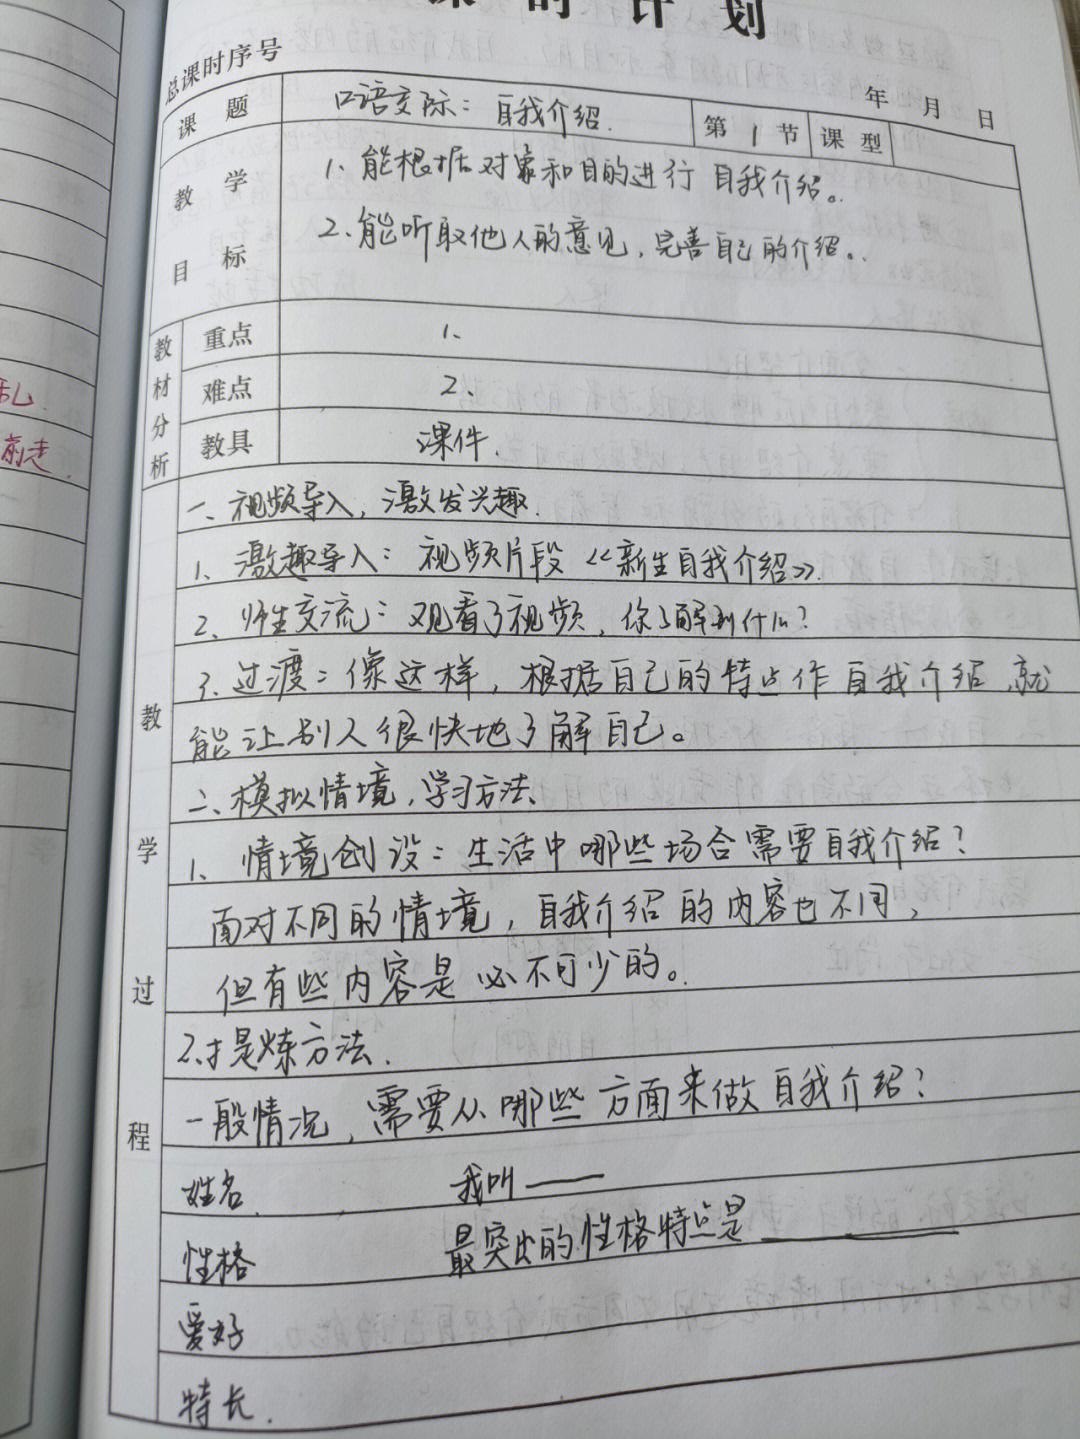 课时计划
总课时序号 年 月 日
课题 口语交际：自我介绍. 第1节 课型
教学目标 1、能根据对象和目的进行自我介绍。
2、能听取他人的意见，完善自己的介绍。
教材分析 重点 1、
难点 2、
教具 课件.
教学过程
一、视频导入，激发兴趣.
1、激趣导入：视频片段《新生自我介绍》.
2、师生交流：观看了视频，你了解到什么？
3、过渡：像这样，根据自己的特点作自我介绍，就
能让别人很快地了解自己。
二、模拟情境，学习方法、
1、情境创设：生活中哪些场合需要自我介绍？
面对不同的情境，自我介绍的内容也不同，
但有些内容是必不可少的。
2、提炼方法.
一般情况，需要从哪些方面来做自我介绍？
姓名. 我叫——
性格 最突出的性格特点是______
爱好
特长.
乱.
前走.